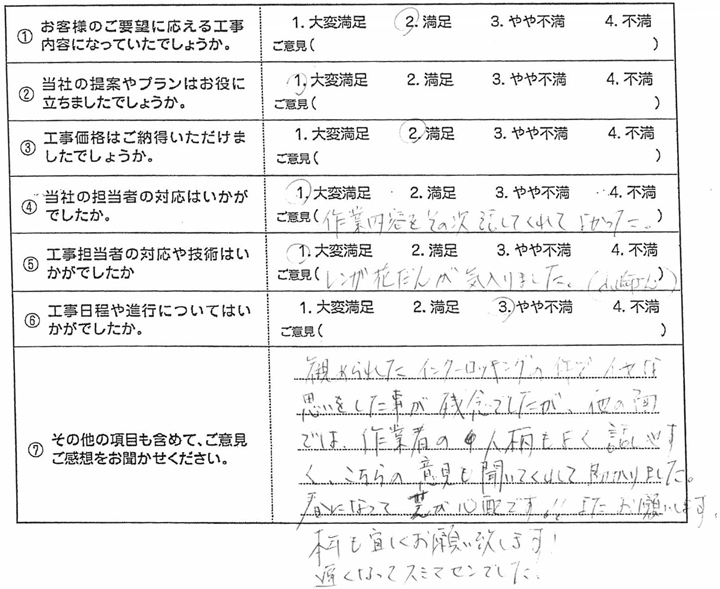 ① お客様のご要望に応える工事 1. 大変満足 2. 満足 3. やや不満 4. 不満
内容になっていたでしょうか。 ご意見( )
② 当社の提案やプランはお役に 1. 大変満足 2. 満足 3. やや不満 4. 不満
立ちましたでしょうか。 ご意見( )
③ 工事価格はご納得いただけま 1. 大変満足 2. 満足 3. やや不満 4. 不満
したでしょうか。 ご意見( )
④ 当社の担当者の対応はいかが 1. 大変満足 2. 満足 3. やや不満 4. 不満
でしたか。 ご意見( 作業内容をその次話してくれてよかった。
⑤ 工事担当者の対応や技術はい 1. 大変満足 2. 満足 3. やや不満 4. 不満
かがでしたか ご意見( レンガ花だんが気入りました。
⑥ 工事日程や進行についてはい 1. 大変満足 2. 満足 3. やや不満 4. 不満
かがでしたか。 ご意見( )
⑦ その他の項目も含めて、ご意見
ご感想をお聞かせください。
られた インターロッキングの件で イヤな
思いをした事が残念でしたが、他の面
では、作業者の人柄もよく話しやす
く、こちらの意見も聞いてくれて助かりました。
春になって が心配です!! またお願いします。
も宜しくお願い致します!
遅くなってスミマセンでした。